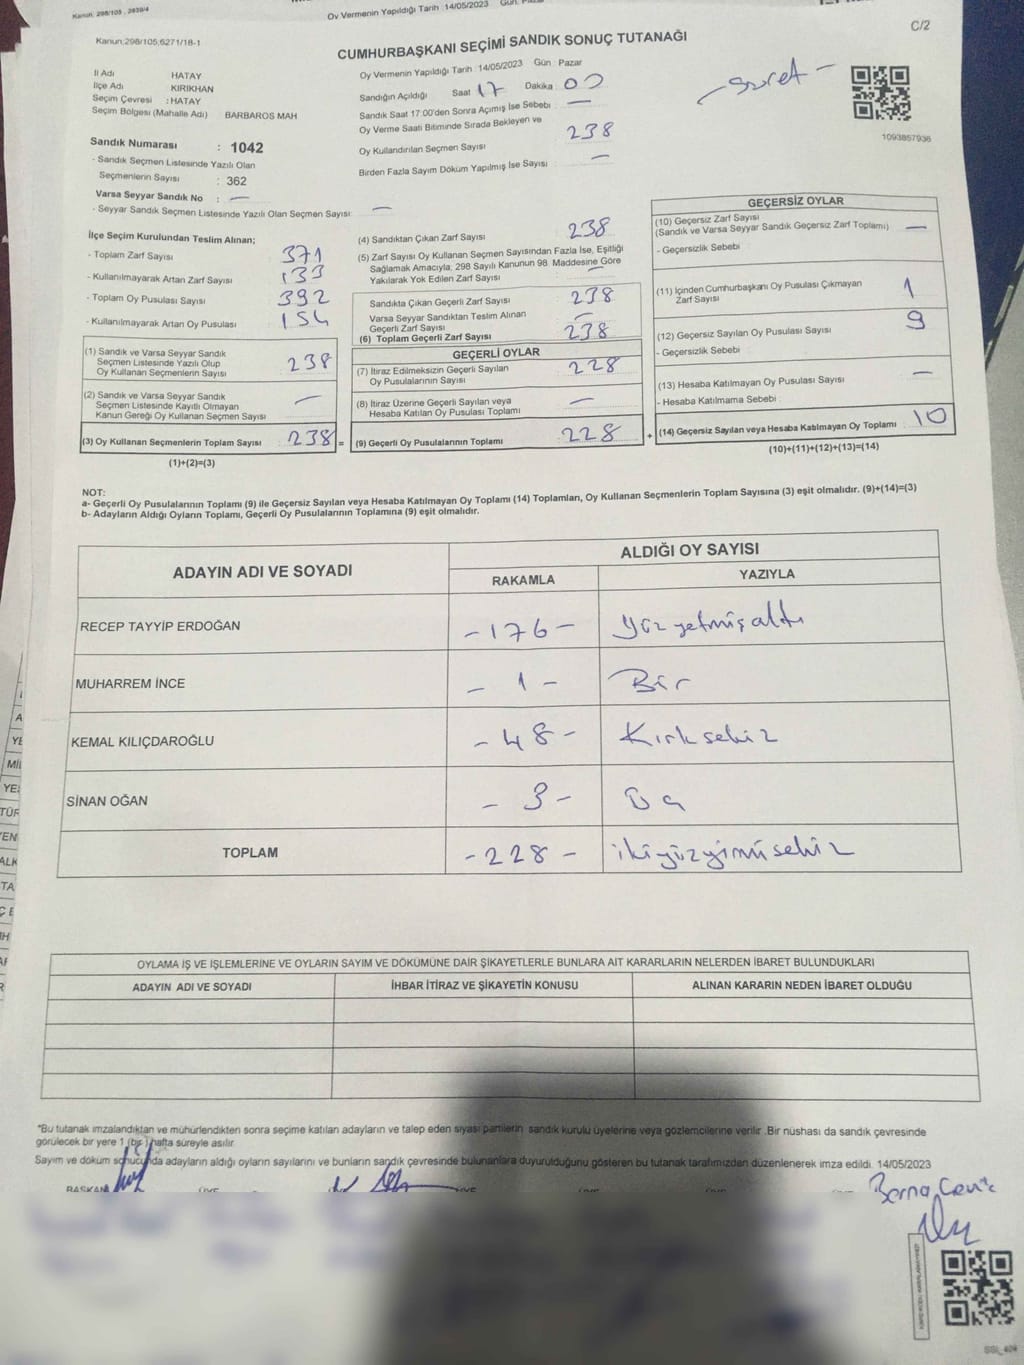 Kanun: 298/105 , 2839/4
Oy Vermenin Yapıldığı Tarih :14/05/2023 Gün: Pazar
C/2
Kanun:298/105;6271/18-1
CUMHURBAŞKANI SEÇİMİ SANDIK SONUÇ TUTANAĞI
İl Adı HATAY
İlçe Adı KIRIKHAN
Seçim Çevresi : HATAY
Seçim Bölgesi (Mahalle Adı) BARBAROS MAH
Oy Vermenin Yapıldığı Tarih : 14/05/2023 Gün : Pazar
Sandığın Açıldığı Saat 17 Dakika : 00
Sandık Saat 17:00'den Sonra Açılmış İse Sebebi : —
Oy Verme Saati Bitiminde Sırada Bekleyen ve
Oy Kullandırılan Seçmen Sayısı 238
Birden Fazla Sayım Döküm Yapılmış İse Sayısı —
- Suret -
1093857936
Sandık Numarası : 1042
- Sandık Seçmen Listesinde Yazılı Olan
Seçmenlerin Sayısı : 362
Varsa Seyyar Sandık No : —
- Seyyar Sandık Seçmen Listesinde Yazılı Olan Seçmen Sayısı: —
İlçe Seçim Kurulundan Teslim Alınan;
- Toplam Zarf Sayısı 371
- Kullanılmayarak Artan Zarf Sayısı 133
- Toplam Oy Pusulası Sayısı 392
- Kullanılmayarak Artan Oy Pusulası 154
(1) Sandık ve Varsa Seyyar Sandık
Seçmen Listesinde Yazılı Olup
Oy Kullanan Seçmenlerin Sayısı 238
(2) Sandık ve Varsa Seyyar Sandık
Seçmen Listesinde Kayıtlı Olmayan
Kanun Gereği Oy Kullanan Seçmen Sayısı —
(3) Oy Kullanan Seçmenlerin Toplam Sayısı 238 =
(1)+(2)=(3)
(4) Sandıktan Çıkan Zarf Sayısı 238
(5) Zarf Sayısı Oy Kullanan Seçmen Sayısından Fazla İse, Eşitliği
Sağlamak Amacıyla, 298 Sayılı Kanunun 98. Maddesine Göre
Yakılarak Yok Edilen Zarf Sayısı —
Sandıkta Çıkan Geçerli Zarf Sayısı 238
Varsa Seyyar Sandıktan Teslim Alınan
Geçerli Zarf Sayısı —
(6) Toplam Geçerli Zarf Sayısı 238
GEÇERLİ OYLAR
(7) İtiraz Edilmeksizin Geçerli Sayılan
Oy Pusulalarının Sayısı 228
(8) İtiraz Üzerine Geçerli Sayılan veya
Hesaba Katılan Oy Pusulası Toplamı —
(9) Geçerli Oy Pusulalarının Toplamı 228 +
GEÇERSİZ OYLAR
(10) Geçersiz Zarf Sayısı
(Sandık ve Varsa Seyyar Sandık Geçersiz Zarf Toplamı) —
- Geçersizlik Sebebi :
(11) İçinden Cumhurbaşkanı Oy Pusulası Çıkmayan
Zarf Sayısı 1
(12) Geçersiz Sayılan Oy Pusulası Sayısı 9
- Geçersizlik Sebebi :
(13) Hesaba Katılmayan Oy Pusulası Sayısı —
- Hesaba Katılmama Sebebi :
(14) Geçersiz Sayılan veya Hesaba Katılmayan Oy Toplamı 10
(10)+(11)+(12)+(13)=(14)
NOT:
a- Geçerli Oy Pusulalarının Toplamı (9) ile Geçersiz Sayılan veya Hesaba Katılmayan Oy Toplamı (14) Toplamları, Oy Kullanan Seçmenlerin Toplam Sayısına (3) eşit olmalıdır. (9)+(14)=(3)
b- Adayların Aldığı Oyların Toplamı, Geçerli Oy Pusulalarının Toplamına (9) eşit olmalıdır.
ADAYIN ADI VE SOYADI ALDIĞI OY SAYISI
RAKAMLA YAZIYLA
RECEP TAYYİP ERDOĞAN -176- Yüz yetmiş altı
MUHARREM İNCE - 1 - Bir
KEMAL KILIÇDAROĞLU -48- Kırk sekiz
SİNAN OĞAN - 3 - Üç
TOPLAM -228- ikiyüzyirmi sekiz
OYLAMA İŞ VE İŞLEMLERİNE VE OYLARIN SAYIM VE DÖKÜMÜNE DAİR ŞİKAYETLERLE BUNLARA AİT KARARLARIN NELERDEN İBARET BULUNDUKLARI
ADAYIN ADI VE SOYADI İHBAR İTİRAZ VE ŞİKAYETİN KONUSU ALINAN KARARIN NEDEN İBARET OLDUĞU
*Bu tutanak imzalandıktan ve mühürlendikten sonra seçime katılan adayların ve talep eden siyasi partilerin sandık kurulu üyelerine veya gözlemcilerine verilir .Bir nüshası da sandık çevresinde
görülecek bir yere 1 (bir ) hafta süreyle asılır.
Sayım ve döküm sonucunda adayların aldığı oyların sayılarını ve bunların sandık çevresinde bulunanlara duyurulduğunu gösteren bu tutanak tarafımızdan düzenlenerek imza edildi. 14/05/2023
BAŞKAN ÜYE ÜYE